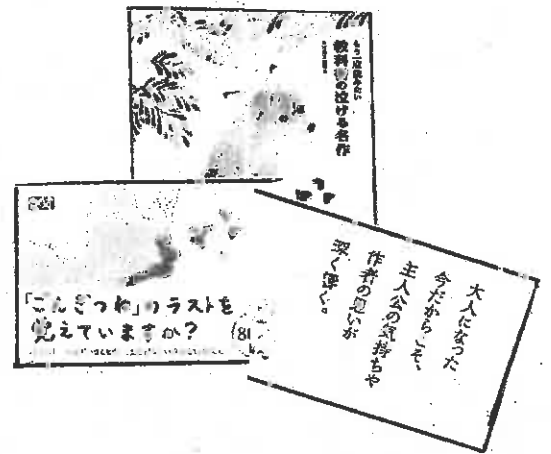 もう一度読みたい
教科書の泣ける名作
「ごんぎつね」のラストを
覚えていますか?
大人になった
今だからこそ、
主人公の気持ちや
作者の思いが
深く響く。